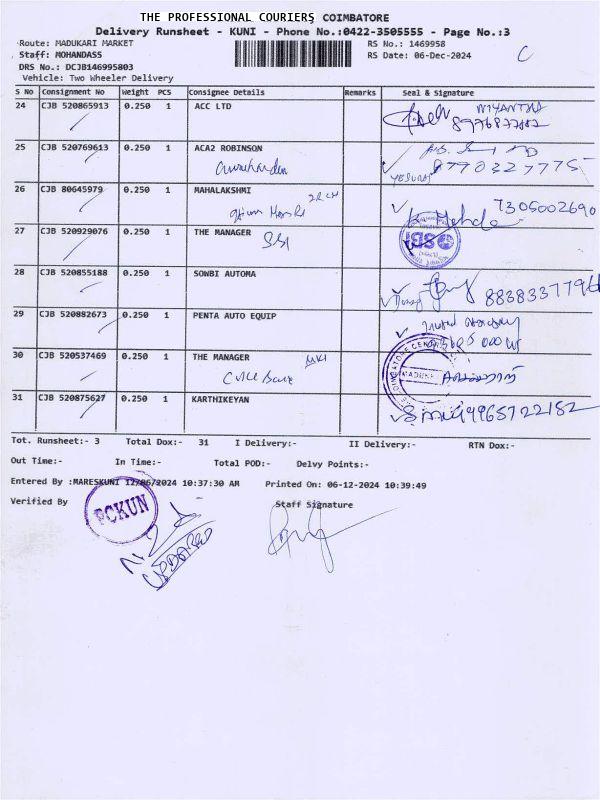 THE PROFESSIONAL COURIERS COIMBATORE
Delivery Runsheet - KUNI - Phone No.:0422-3505555 - Page No.:3
Route: MADUKARI MARKET RS No.: 1469958
Staff: MOHANDASS RS Date: 06-Dec-2024 C
DRS No.: DCJB146995803
Vehicle: Two Wheeler Delivery
S No Consignment No Weight PCS Consignee Details Remarks Seal & Signature
24 CJB 520865913 0.250 1 ACC LTD
25 CJB 520769613 0.250 1 ACA2 ROBINSON
8770327775
26 CJB 80645979 0.250 1 MAHALAKSHMI
7305002690
27 CJB 520929076 0.250 1 THE MANAGER
SBI SBI
28 CJB 520855188 0.250 1 SOWBI AUTOMA
29 CJB 520882673 0.250 1 PENTA AUTO EQUIP
30 CJB 520537469 0.250 1 THE MANAGER
31 CJB 520875627 0.250 1 KARTHIKEYAN
9965722182
Tot. Runsheet:- 3 Total Dox:- 31 I Delivery:- II Delivery:- RTN Dox:-
Out Time:- In Time:- Total POD:- Delvy Points:-
Entered By :MARESKUNI 12/06/2024 10:37:30 AM Printed On: 06-12-2024 10:39:49
Verified By Staff Signature
PCKUN
UPDATED